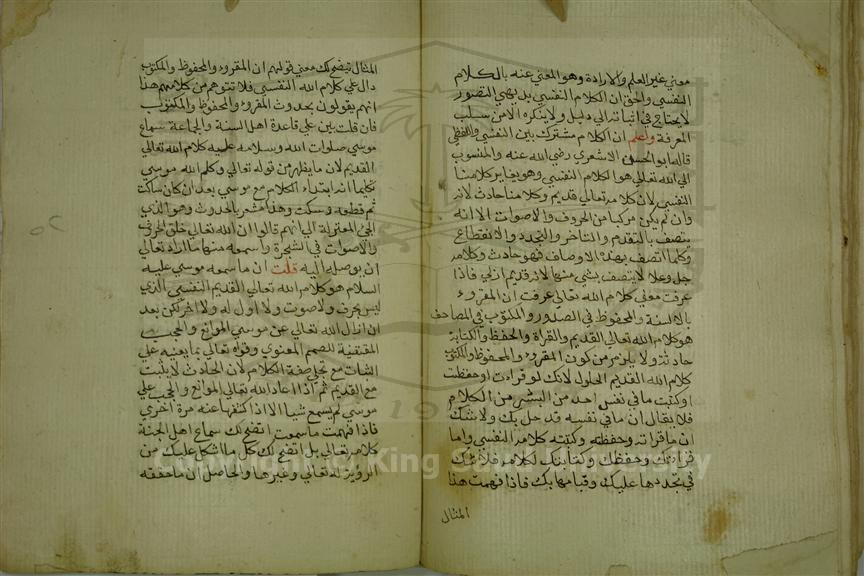 معني غير العلم والارادة وهو المعني عنه بالكلام
النفسي والحق ان الكلام النفسي بديهي التصور
لا يحتاج في اثباته الي دليل ولا ينكره الا من سلب
المعرفة واعلم ان الكلام مشترك بين النفسي واللفظي
قاله ابو الحسن الاشعري رضي الله عنه والمنسوب
الي الله تعالي هو الكلام النفسي وهو يغاير كلامنا
النفسي لان كلامه تعالي قديم وكلامنا حادث لانه
وان لم يكن مركبا من الحروف والاصوات الا انه
يتصف بالتقدم والتاخر والتجدد والانقطاع
وكلما اتصف بهذه الاوصاف فهو حادث وكلامه
جل وعلا لا يتصف بشي منها لانه قديم ازلي فاذا
عرفت معني كلام الله تعالي عرفت ان المقروء
بالالسنة والمحفوظ في الصدور والمكتوب في المصاحف
هو كلام الله تعالي القديم والقراة والحفظ والكتابة
حادثة ولا يلزم من كون المقروء والمحفوظ والمكتوب
كلام الله القديم الحلول لانك لو قرات او حفظت
او كتبت ما في نفس احد من البشر من الكلام
فلا يقال ان ما في نفسه قد حل بك ولا شك
ان ما قراته وحفظته وكتبته كلامه النفسي واما
قراتك وحفظك وكتابتك لكلامه فلا شك
في تجددها عليك وقيامها بك فاذا فهمت هذا
المثال
المثال تيضح لك معني قولهم ان المقروء والمحفوظ والمكتوب
دال علي كلام الله النفسي فلا تتوهم من كلامهم هذا
انهم يقولون بحدوث المقروء والمحفوظ والمكتوب
فان قلت بين علي قاعدة اهل السنة والجماعة سماع
موسي صلوات الله وسلامه عليه كلام الله تعالي
القديم لان ما يظهر من قوله تعالي وكلم الله موسي
تكليما انه ابتداء الكلام مع موسي بعد ان كان ساكت
ثم قطعه وسكت وهذا مشعر بالحدوث وهو الذي
الجئ المعتزلة الي انهم قالوا ان الله تعالي خلق الحرف
والاصوات في الشجرة واسمعه منها ما اراد تعالي
ان يوصله اليه قلت ان ما سمعه موسي عليه
السلام هو كلام الله تعالي القديم النفسي الذي
ليس بحرف ولا صوت ولا اول له ولا اخر لكن بعد
ان ازال الله تعالي عن موسي الموانع والحجب
المقتضية للصمم المعنوي وقواه تعالي بما يعينه علي
الثبات مع تجلي صفة الكلام لان الحادث لا يثبت
مع القديم ثم اذا اعاد الله تعالي الموانع والحجب علي
موسي لم يسمع شيا الا اذا كشفها عنه مرة اخري
فاذا فهمت ما سمعت اتضح لك سماع اهل الجنة
كلامه تعالي بل اتضح لك كل ما اشكل عليك من
الرؤية له تعالي وغيرها والحاصل ان ما حققه